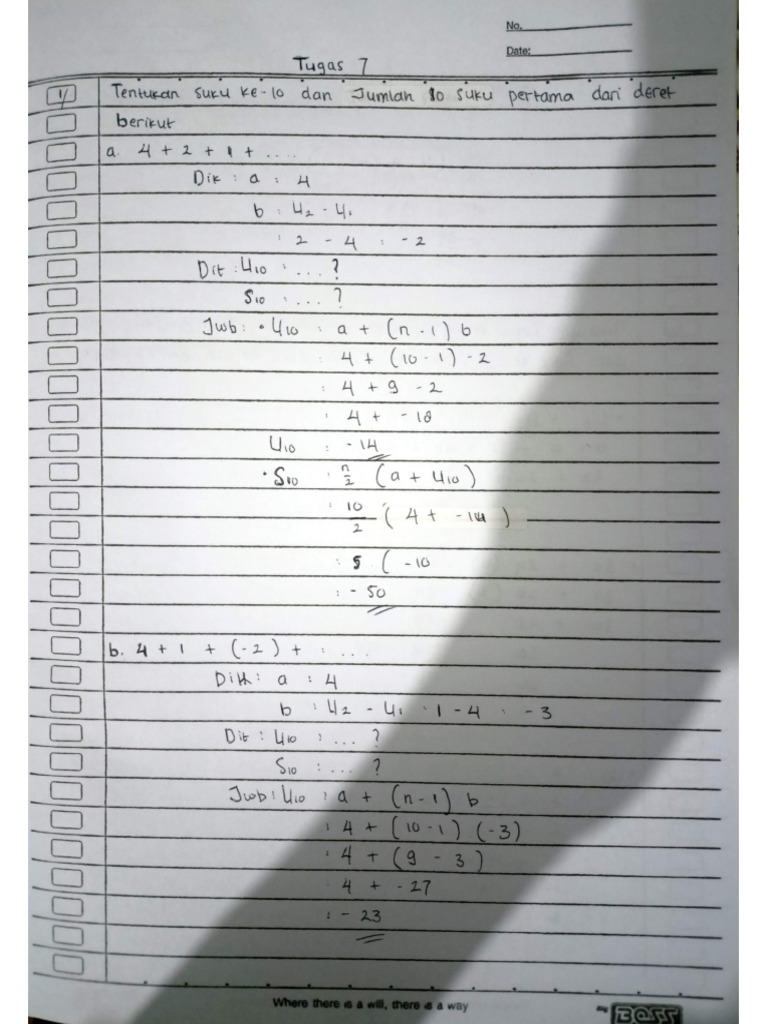 No.
Date:
Tugas 7
1/ Tentukan suku ke-10 dan Jumlah 10 suku pertama dari deret
berikut
a. 4 + 2 + 1 + ....
Dik : a : 4
b : U2 - U1
: 2 - 4 : -2
Dit : U10 : ... ?
S10 : ... ?
Jwb : • U10 : a + (n - 1) b
: 4 + (10 - 1) - 2
: 4 + 9 - 2
: 4 + - 18
U10 : - 14
• S10 : n/2 (a + U10)
: 10/2 ( 4 + -14 )
: 5 ( -10
: - 50
b. 4 + 1 + (-2) + ....
Dik : a : 4
b : U2 - U1 : 1 - 4 : - 3
Dit : U10 : ... ?
S10 : ... ?
Jwb : U10 : a + (n - 1) b
: 4 + (10 - 1) (-3)
: 4 + (9 - 3)
4 + - 27
: - 23
Where there is a will, there is a way
BOSS